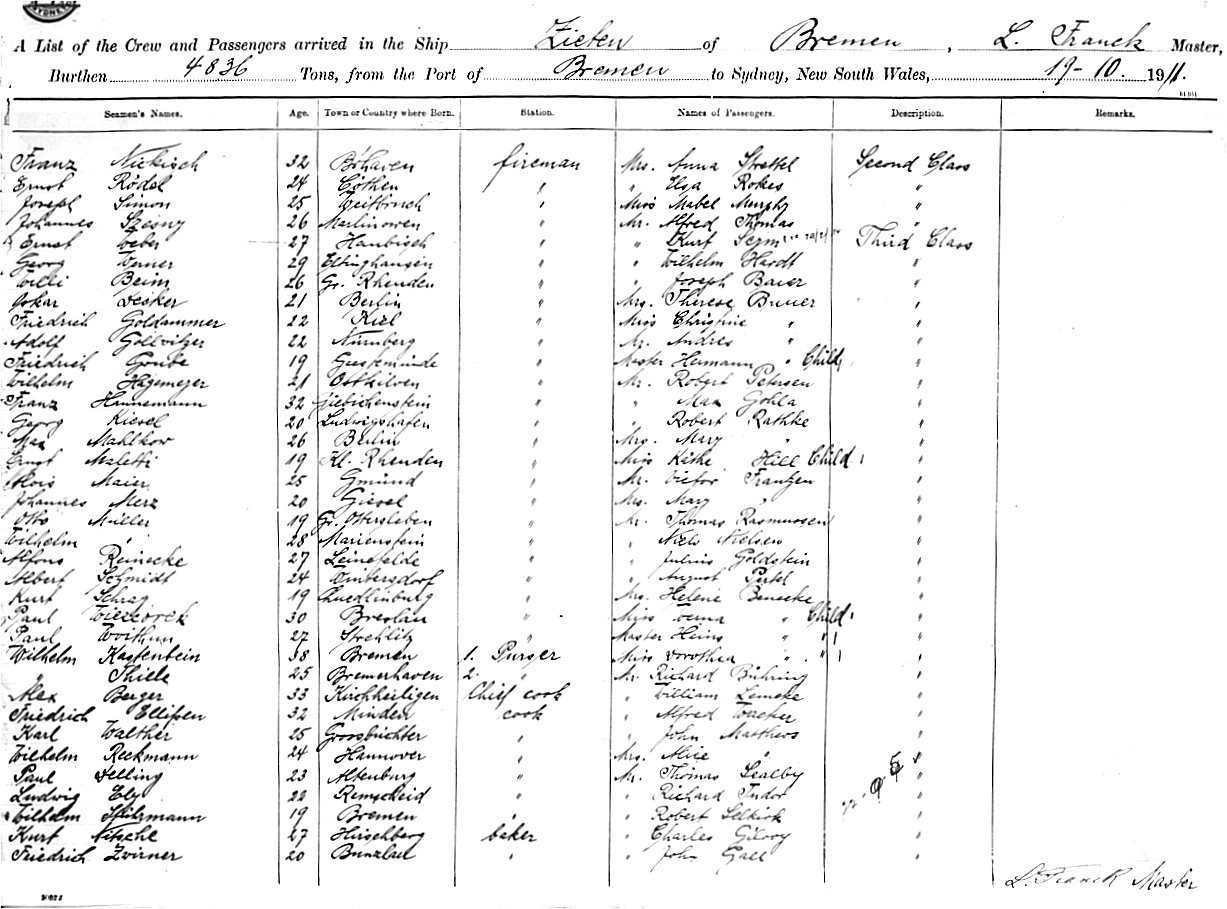 SYDNEY
A List of the Crew and Passengers arrived in the Ship Zieten of Bremen, L. Franck Master,
Burthen 4836 Tons, from the Port of Bremen to Sydney, New South Wales, 19-10. 1911.
Seamen's Names. Age. Town or Country where Born. Station. Names of Passengers. Description. Remarks.
Franz Nickisch 32 B'haven fireman Mrs. Anna Strettel Second Class
Ernst Rödel 24 Cöthen " " Elsa Rokes "
Joseph Simon 25 Zeitbruch " Miss Mabel Murphy "
Johannes 26 " Mr. Alfred Thomas "
Ernst Weber 27 Haubisch " " Kurt Third Class
Georg Werner 29 Eltinghausen " " Wilhelm Hardt "
Willi Beim 26 Gr. Rhenden " " Joseph Bauer "
Oskar Decker 21 Berlin " Mrs. Therese Bruer "
Friedrich Goldammer 22 Kiel " Miss Christine " "
Adolf Gollvitzer 22 Nürnberg " Mr. Andres " "
Friedrich Grube 19 Geestemünde " Master Hermann " Child "
Wilhelm Hagemeyer 21 " Mr. Robert Petersen "
Franz Hannemann 32 Giebichenstein " " Max Gohla "
Georg Kiesel 20 Ludwigshafen " " Robert Rathke "
Max Mahlkow 26 Berlin " Mrs. Mary " "
Ernst Maletti 19 Kl. Rhenden " Miss Käthe Hill Child "
Alois Maier 25 Gmünd " Mr. Victor Frantzen "
Johannes Merz 20 Giesel " Mrs. Mary " "
Otto Müller 19 Gr. Ottersleben " Mr. Thomas Rasmussen "
Wilhelm " 28 Marienstein " " Niels Nielsen "
Alfons Reinecke 27 Leinefelde " " Julius Goldstein "
Albert Schmidt 24 " " August Pertel "
Kurt Schrag 19 Quedlinburg " Mrs. Helene Benecke "
Paul Wieczorek 30 Breslau " Miss Verna " Child "
Paul Woithun 27 Strehlitz " Master Heins " " "
Wilhelm Kastenbein 38 Bremen 1. Purser Miss Dorothea " " "
" Thiele 25 Bremerhaven 2. " Mr. Richard Bühring "
Alex Berger 33 Kirchheiligen Chief cook " William Lemcke "
Friedrich Ellissen 32 Minden cook " Alfred Wacker "
Karl Walther 25 " " John Matthews "
Wilhelm Reckmann 24 Hannover " Mrs. Alice " "
Paul Delling 23 Altenburg " Mr. Thomas Sealby "
Ludwig Ely 22 Remscheid " " Richard Tudor "
Wilhelm Stührmann 19 Bremen " " Robert Selkirk "
Kurt Nitsche 27 Hirschberg baker " Charles Gilroy "
Friedrich Zwirner 20 Bunzlau " " John Gall "
L. Franck Master